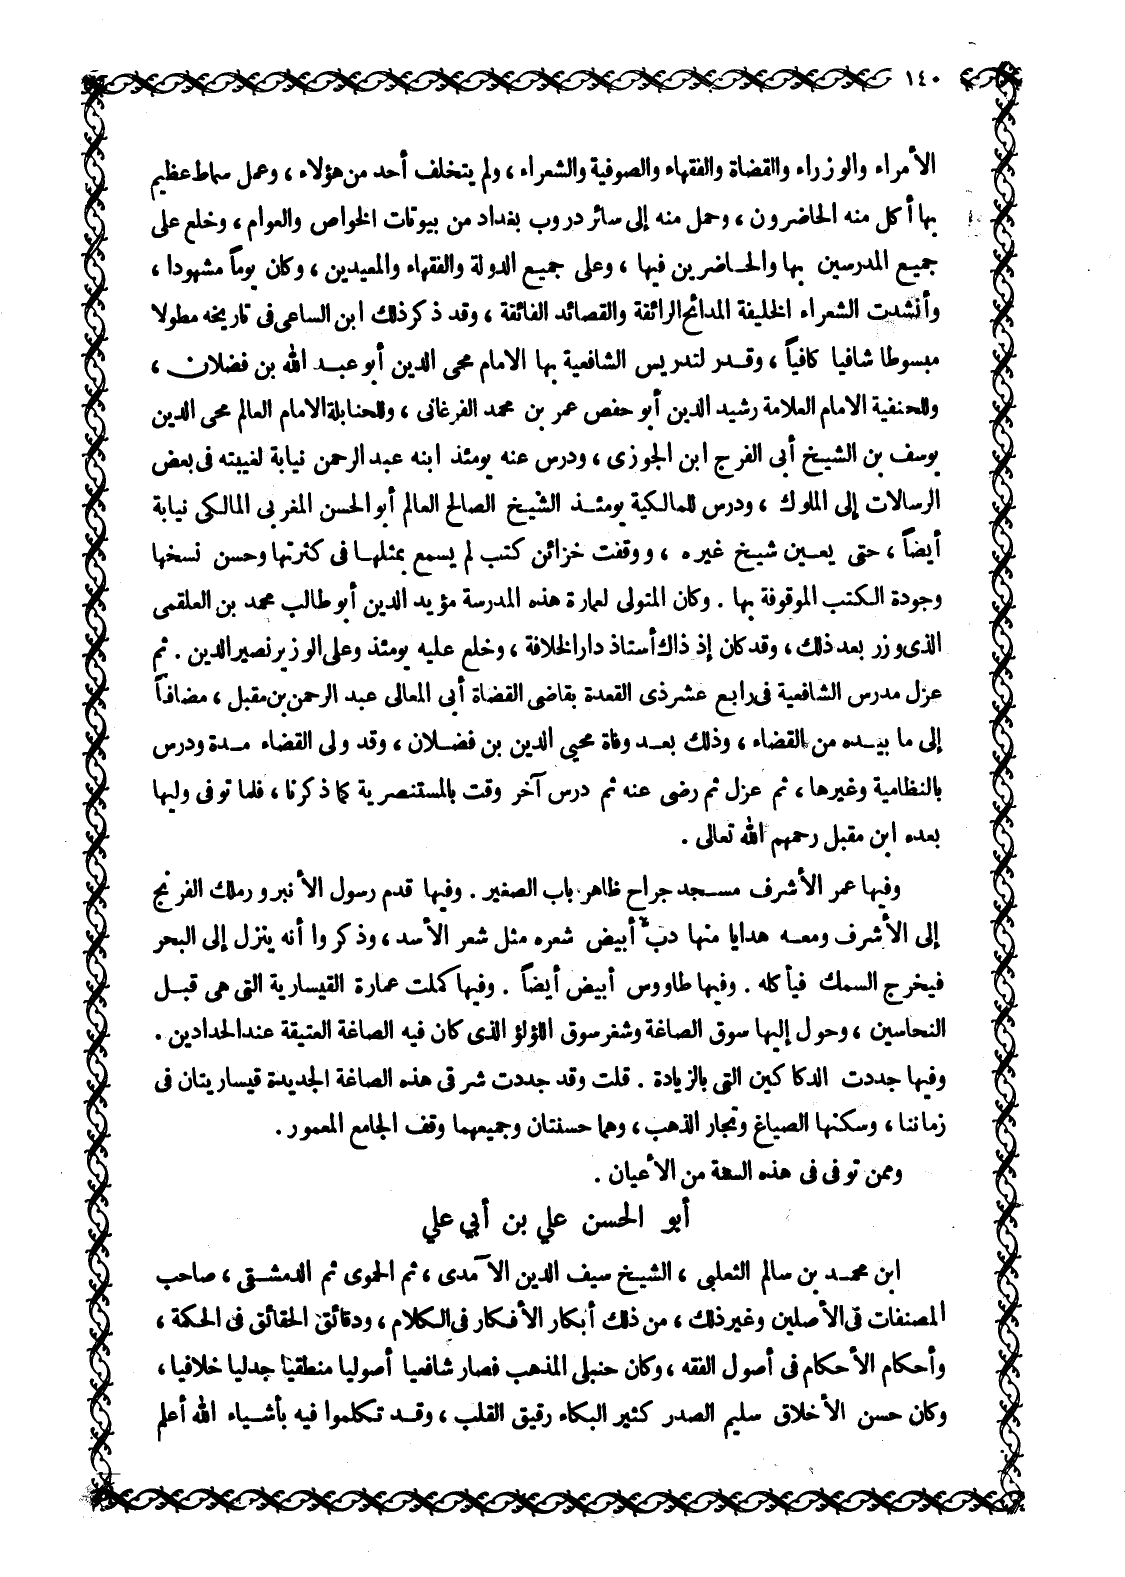 ١٤٠
الأمراء والوزراء والقضاة والفقهاء والصوفية والشعراء ، ولم يتخلف أحد من هؤلاء ، وعمل سماط عظيم
بها أكل منه الحاضرون ، وحمل منه إلى سائر دروب بغداد من بيوتات الخواص والعوام ، وخلع على
جميع المدرسين بها والحاضرين فيها ، وعلى جميع الدولة والفقهاء والمعيدين ، وكان يوماً مشهودا ،
وأنشدت الشعراء الخليفة المدائح الرائقة والقصائد الفائقة ، وقد ذكر ذلك ابن الساعى فى تاريخه مطولا
مبسوطا شافيا كافياً ، وقدر لتدريس الشافعية بها الامام محى الدين أبو عبد الله بن فضلان ،
وللحنفية الامام العلامة رشيد الدين أبو حفص عمر بن محمد الفرغانى ، وللحنابلة الامام العالم محى الدين
يوسف بن الشيخ أبى الفرج ابن الجوزى ، ودرس عنه يومئذ ابنه عبد الرحمن نيابة لغيبته فى بعض
الرسالات إلى الملوك ، ودرس للمالكية يومئذ الشيخ الصالح العالم أبو الحسن المغربى المالكى نيابة
أيضاً ، حتى يعين شيخ غيره ، ووقفت خزائن كتب لم يسمع بمثلها فى كثرتها وحسن نسخها
وجودة الكتب الموقوفة بها . وكان المتولى لعمارة هذه المدرسة مؤيد الدين أبو طالب محمد بن العلقمى
الذى وزر بعد ذلك ، وقد كان إذ ذاك أستاذ دار الخلافة ، وخلع عليه يومئذ وعلى الوزير نصير الدين . ثم
عزل مدرس الشافعية فى رابع عشر ذى القعدة بقاضى القضاة أبى المعالى عبد الرحمن بن مقبل ، مضافاً
إلى ما بيده من القضاء ، وذلك بعد وفاة محيى الدين بن فضلان ، وقد ولى القضاء مدة ودرس
بالنظامية وغيرها ، ثم عزل ثم رضى عنه ثم درس آخر وقت بالمستنصرية كما ذكرنا ، فلما توفى وليها
بعده ابن مقبل رحمهم الله تعالى .
وفيها عمر الأشرف مسجد جراح ظاهر باب الصغير . وفيها قدم رسول الأنبرور ملك الفرنج
إلى الأشرف ومعه هدايا منها دب أبيض شعره مثل شعر الأسد ، وذكروا أنه ينزل إلى البحر
فيخرج السمك فيأكله . وفيها طاووس أبيض أيضاً . وفيها كملت عمارة القيسارية التى هى قبل
النحاسين ، وحول إليها سوق الصاغة وشغر سوق اللؤلؤ الذى كان فيه الصاغة العتيقة عند الحدادين .
وفيها جددت الدكاكين التى بالزيادة . قلت وقد جددت شرقى هذه الصاغة الجديدة قيساريتان فى
زماننا ، وسكنها الصياغ وتجار الذهب ، وهما حسنتان وجميعهما وقف الجامع المعمور .
وممن توفى فى هذه السنة من الأعيان .
أبو الحسن علي بن أبي علي
ابن محمد بن سالم الثعلبى ، الشيخ سيف الدين الآمدى ، ثم الحموى ثم الدمشقى ، صاحب
المصنفات فى الأصلين وغير ذلك ، من ذلك أبكار الأفكار فى الكلام ، ودقائق الحقائق فى الحكمة ،
وأحكام الأحكام فى أصول الفقه ، وكان حنبلى المذهب فصار شافعيا أصوليا منطقيا جدليا خلافيا ،
وكان حسن الأخلاق سليم الصدر كثير البكاء رقيق القلب ، وقد تكلموا فيه بأشياء الله أعلم